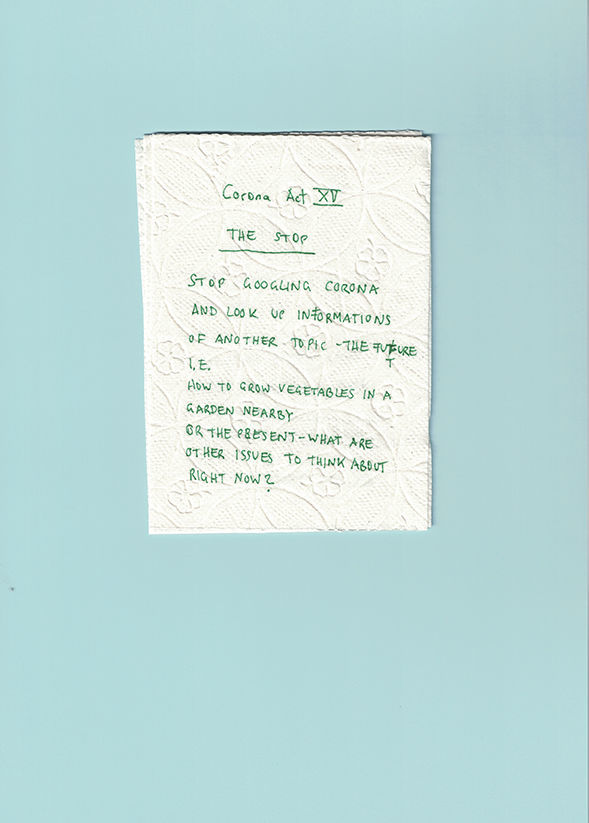 Corona Act XV
THE STOP
STOP GOOGLING CORONA
AND LOOK UP INFORMATIONS
OF ANOTHER TOPIC - THE FUTURE
I.E.
HOW TO GROW VEGETABLES IN A
GARDEN NEARBY
OR THE PRESENT - WHAT ARE
OTHER ISSUES TO THINK ABOUT
RIGHT NOW?